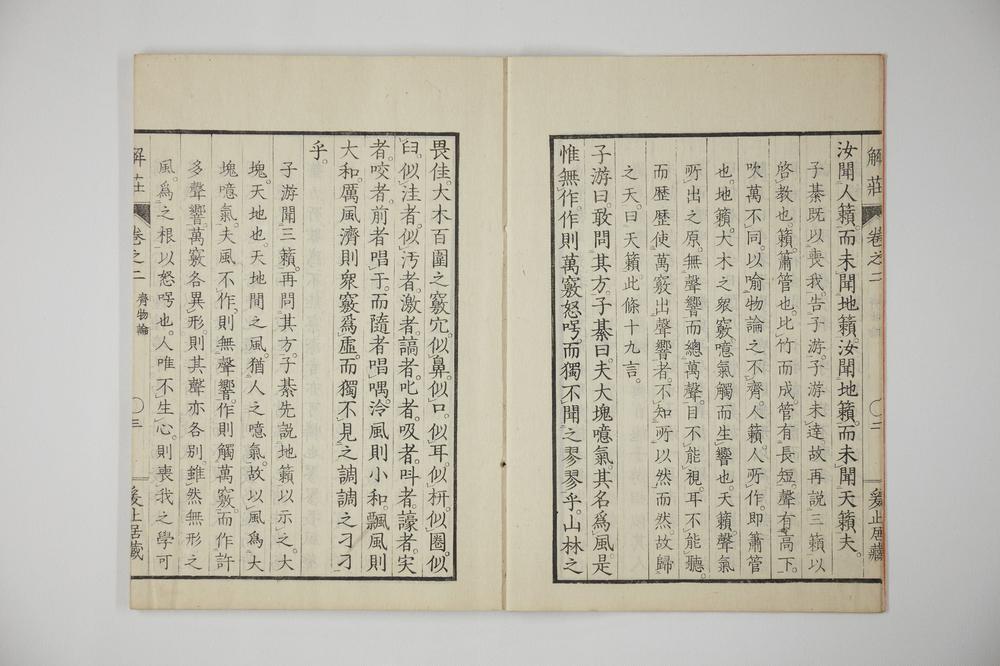 解莊 卷之二 〇二 爰止居藏
汝聞人籟。而未聞地籟。汝聞地籟。而未聞天籟夫。
子綦既以喪我告子游。子游未達故再説三籟以
啓教也。籟。簫管也。比竹而成管有長短。聲有高下。
吹萬不同。以喩物論之不齊。人籟人所作。即簫管
也。地籟。大木之衆竅。噫氣觸而生響也。天籟。聲氣
所出之原。無聲響而總萬聲。目不能視。耳不能聽。
而歴歴使萬竅出聲響者。不知所以然而然。故歸
之天。曰天籟。此條十九言。
子游曰。敢問其方。子綦曰。夫大塊噫氣其名爲風。是
惟無作。作則萬竅怒呺。而獨不聞之翏翏乎。山林之
畏佳。大木百圍之竅穴。似鼻。似口。似耳。似枅。似圈。似
臼。似洼者。似汚者。激者。謞者。叱者。吸者。叫者。譹者。宎
者。咬者。前者唱于。而隨者唱喁。泠風則小和。飄風則
大和。厲風濟則衆竅爲虛。而獨不見之調調之刁刁
乎。
子游聞三籟。再問其方。子綦先説地籟以示之。大
塊。天地也。天地間之風。猶人之噫氣。故以風爲大
塊噫氣。夫風不作。則無聲響。作則觸萬竅。而作許
多聲響。萬竅各異形。則其聲亦各別。雖然無形之
風。爲之根。以怒呺也。人唯不生心。則喪我之學可
解莊 卷之二 齊物論 〇三 爰止居藏